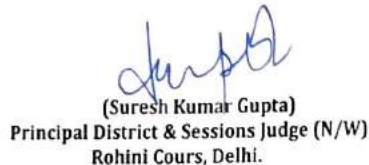 (Suresh Kumar Gupta)
Principal District & Sessions Judge (N/W)
Rohini Cours, Delhi.